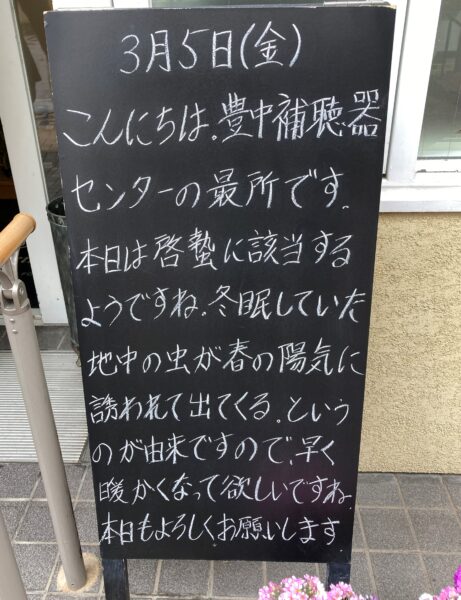 3月5日(金)
こんにちは。豊中補聴器
センターの最所です。
本日は啓蟄に該当する
ようですね。冬眠していた
地中の虫が春の陽気に
誘われて出てくる。という
のが由来ですので、早く
暖かくなって欲しいですね。
本日もよろしくお願いします。